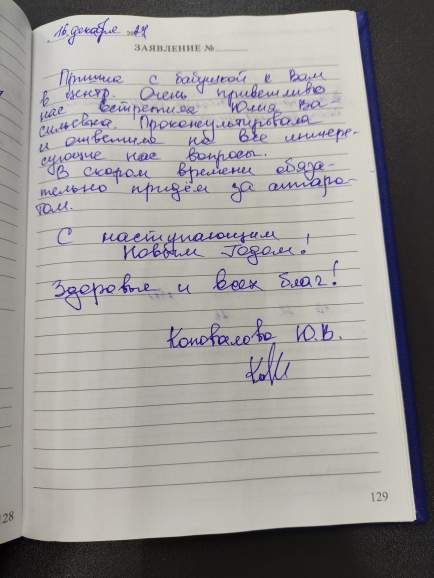 16 декабря
ЗАЯВЛЕНИЕ №
Пришла с бабушкой к Вам
в центр. Очень приветливо
нас встретила Юлия Ва-
сильевна. Проконсультировала
и ответила на все интере-
сующие нас вопросы.
В скором времени обяза-
тельно придём за аппара-
том.
С наступающим
Новым Годом!
Здоровья и всех благ!
Коновалова Ю.В.
129
128